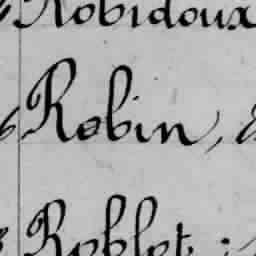 Robidoux
Robin,
Roblot ;